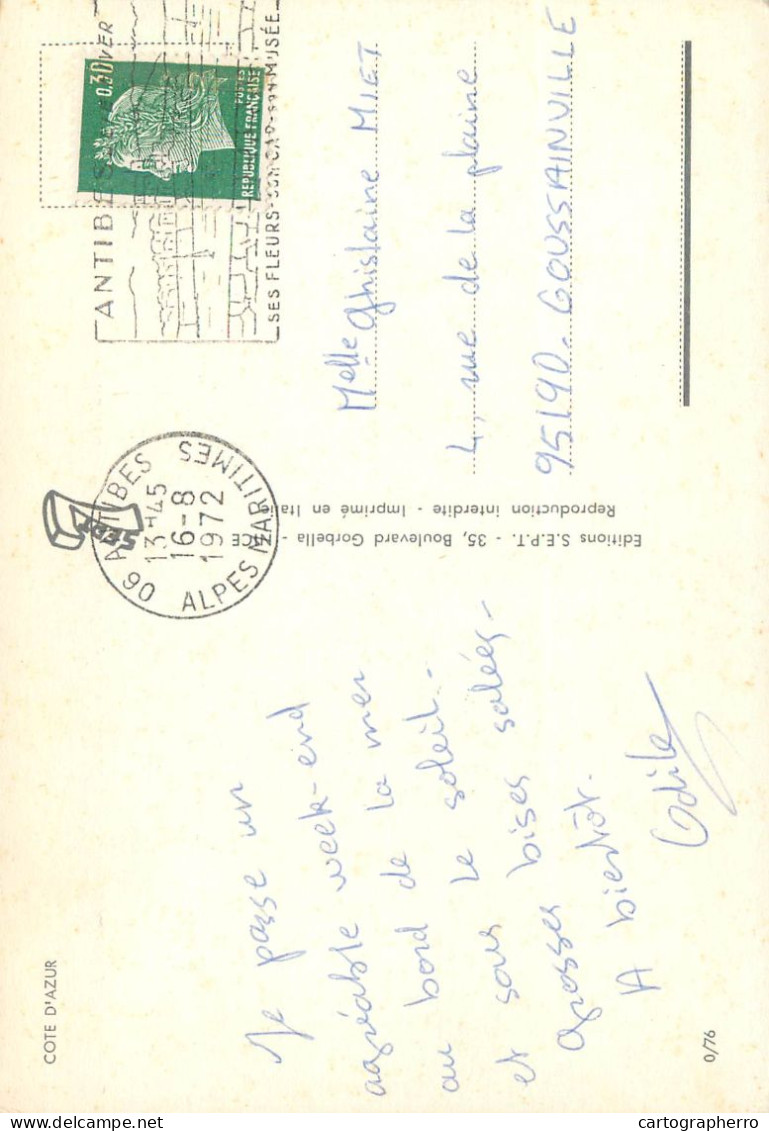 COTE D'AZUR
Je passe un
agréable week-end
au bord de la mer
et sous le soleil.
Grosses bises salées.
A bientôt.
Odile
0/76
Editions S.E.P.T. - 35, Boulevard Gorbella - NICE
Reproduction interdite - Imprimé en Italie
SEPT
90 ANTIBES
13H45
16-8
1972
ALPES MARITIMES
ANTIBES
SES FLEURS SON CAP SON MUSÉE
0.30
POSTES
REPUBLIQUE FRANÇAISE
Melle Ghislaine MIET
4, rue de la plaine
95190 - GOUSSAINVILLE
delcampe.net
cartographerro